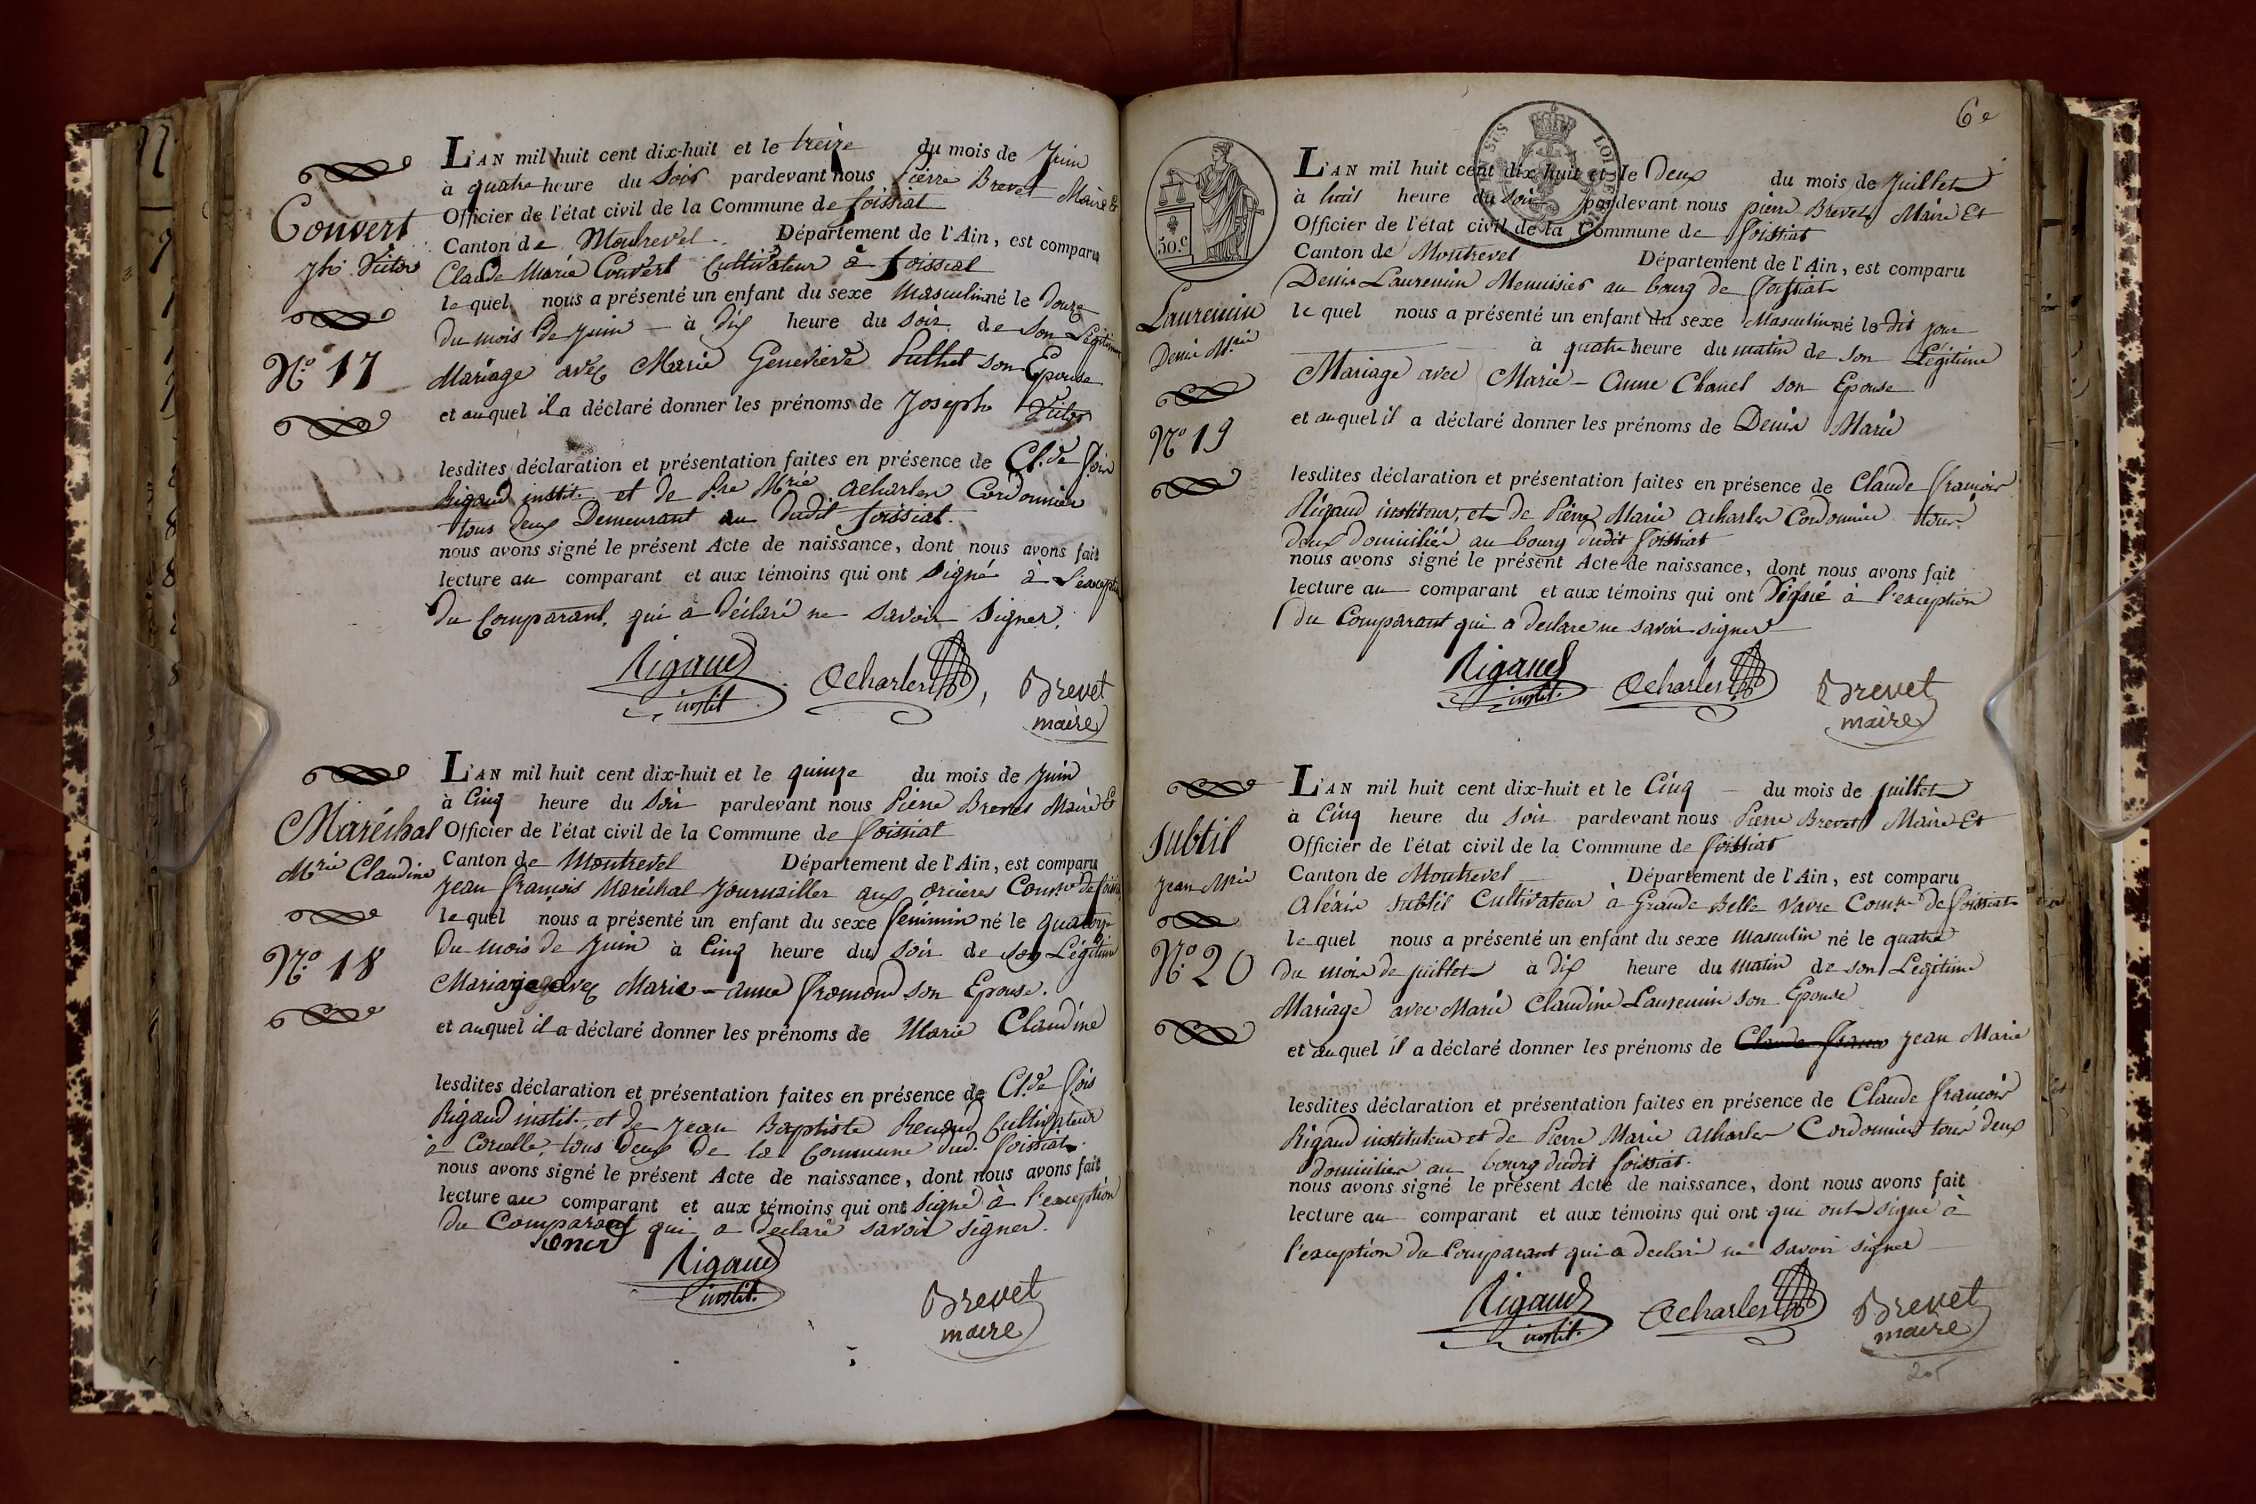 L'AN mil huit cent dix-huit et le treize du mois de Juin
à quatre heure du Soir pardevant nous Pierre Brevet Maire &
Officier de l'état civil de la Commune de foissiat
Canton de Montrevel Département de l'Ain, est comparu
Claude Marie Convert Cultivateur à foissiat
le quel nous a présenté un enfant du sexe Masculin né le douze
du mois de Juin à dix heure du soir de son Légitime
Mariage avec Marie Geneviève Puthet son Epouse
et auquel il a déclaré donner les prénoms de Joseph Victor
lesdites déclaration et présentation faites en présence de Cl.de fois
Rigaud instit. et de P.re M.rie Acharles Cordonnier
tous deux Demeurant au dudit foissiat.
nous avons signé le présent Acte de naissance, dont nous avons fait
lecture au comparant et aux témoins qui ont signé à l'exception
du Comparant, qui a déclaré ne savoir signer.
Rigaud instit
Acharles
Brevet maire
Convert
Jph Victor
No. 17
L'AN mil huit cent dix-huit et le quinze du mois de Juin
à Cinq heure du Soir pardevant nous Pierre Brevet Maire &
Officier de l'état civil de la Commune de foissiat
Canton de Montrevel Département de l'Ain, est comparu
Jean françois Maréchal Journaillier aux orcières Comm.e de
le quel nous a présenté un enfant du sexe féminin né le quatorze
du mois de Juin à Cinq heure du soir de son Légitime
Mariage avec Marie-anne fromond son Epouse.
et auquel il a déclaré donner les prénoms de Marie Claudine
lesdites déclaration et présentation faites en présence de Cl.de fois
Rigaud instit. et de Jean Baptiste Renoud Cultivateur
à Corcelle, tous deux de la Commune dud. foissiat.
nous avons signé le présent Acte de naissance, dont nous avons fait
lecture au comparant et aux témoins qui ont signé à l'exception
du Comparant qui a declaré savoir signer.
Rigaud instit.
Brevet maire
Maréchal
M.rie Claudine
No. 18
6e
L'AN mil huit cent dix-huit et le deux du mois de Juillet
à huit heure du soir pardevant nous pierre Brevet Maire Et
Officier de l'état civil de la Commune de foissiat
Canton de Montrevel Département de l'Ain, est comparu
Denis Laurencin Menuisier au bourg de foissiat
le quel nous a présenté un enfant du sexe Masculin né le dit jour
à quatre heure du matin de son Légitime
Mariage avec Marie-Anne Chanel son Epouse
et auquel il a déclaré donner les prénoms de Denis Marie
lesdites déclaration et présentation faites en présence de Claude françois
Rigaud instituteur, et de Pierre Marie Acharles Cordonnier tous
deux domiciliés au bourg dudit foissiat
nous avons signé le présent Acte de naissance, dont nous avons fait
lecture au comparant et aux témoins qui ont signé à l'exception
du Comparant qui a declare ne savoir signer
Rigaud instit.
Acharles
Brevet maire
50.c
Laurencin
Denis M.rie
No 19
L'AN mil huit cent dix-huit et le Cinq du mois de juillet
à Cinq heure du Soir pardevant nous Pierre Brevet Maire Et
Officier de l'état civil de la Commune de foissiat
Canton de Montrevel Département de l'Ain, est comparu
Aléxis Subtil Cultivateur à Grande Belle Vavre Com.ne de foissiat
le quel nous a présenté un enfant du sexe masculin né le quatre
du mois de juillet à dix heure du matin de son Légitime
Mariage avec Marie Claudine Laurencin son Epouse
et auquel il a déclaré donner les prénoms de Claude françois Jean Marie
lesdites déclaration et présentation faites en présence de Claude françois
Rigaud instituteur et de Pierre Marie Acharles Cordonnier tous deux
domiciliés au bourg dudit foissiat.
nous avons signé le présent Acte de naissance, dont nous avons fait
lecture au comparant et aux témoins qui ont qui ont signé à
l'exception du Comparant qui a declaré ne savoir signer
Rigaud instit.
Acharles
Brevet maire
Subtil
Jean M.rie
No. 20